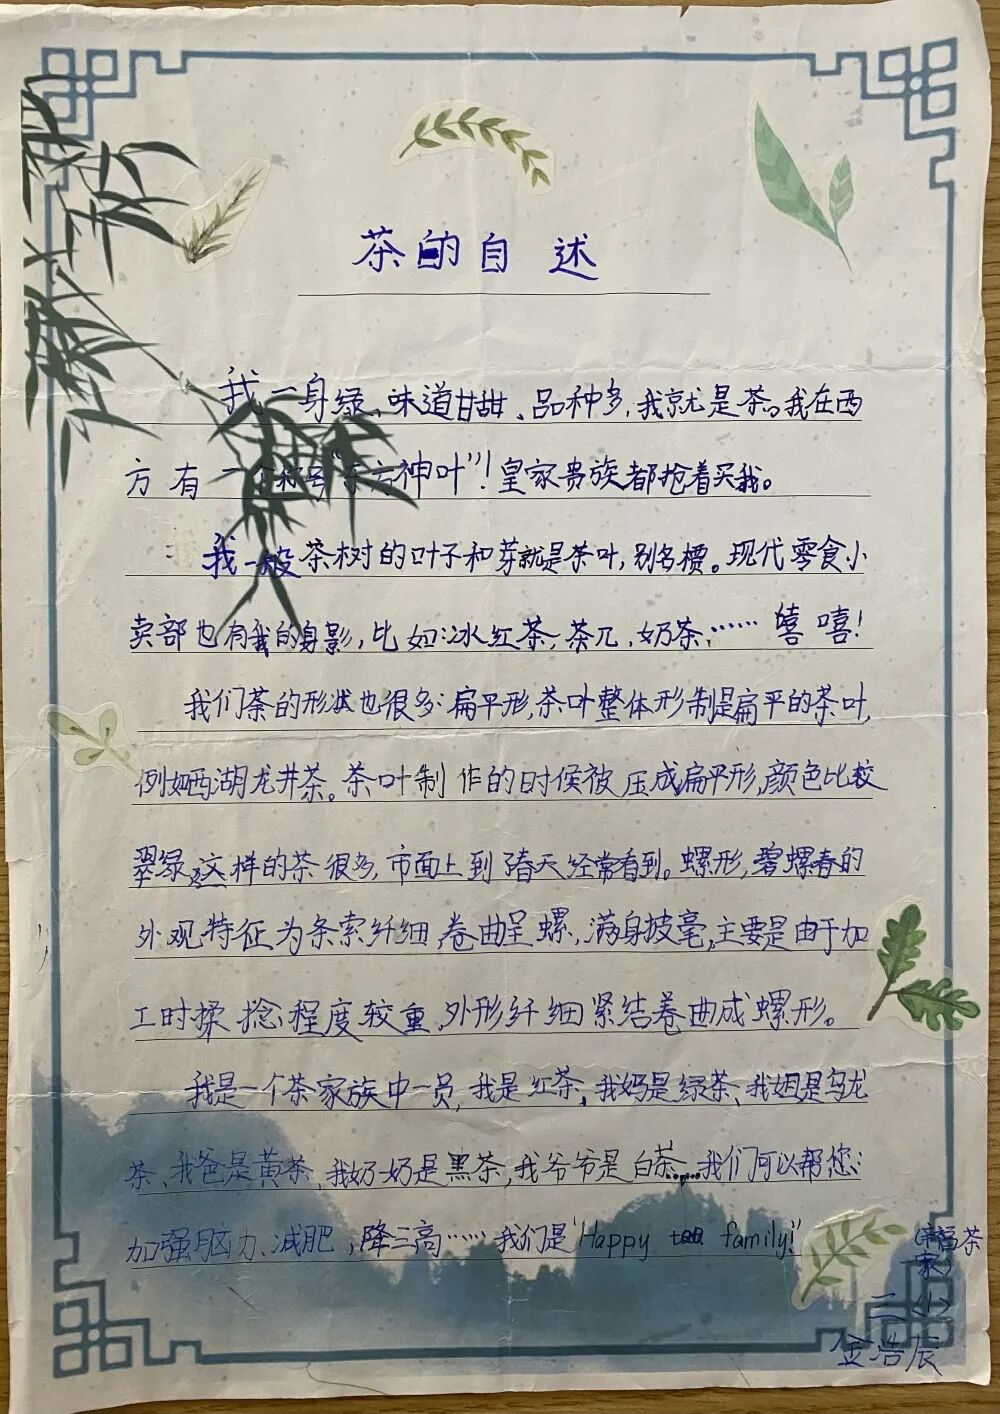 茶的自述
我一身绿、味道甘甜、品种多,我就是茶。我在西
方有一个称号“东方神叶”!皇家贵族都抢着买我。
我一般茶树的叶子和芽就是茶叶,别名槚。现代零食小
卖部也有我的身影,比如:冰红茶,茶兀,奶茶,……嘻嘻!
我们茶的形状也很多:扁平形,茶叶整体形制是扁平的茶叶,
例如西湖龙井茶。茶叶制作的时候被压成扁平形,颜色比较
翠绿,这样的茶很多,市面上到春天经常看到。螺形,碧螺春的
外观特征为条索纤细,卷曲呈螺,满身披毫,主要是由于加
工时揉捻程度较重,外形纤细紧结卷曲成螺形。
我是一个茶家族中一员,我是红茶,我妈是绿茶、我姐是乌龙
茶、我爸是黄茶,我奶奶是黑茶,我爷爷是白茶……我们可以帮您:
加强脑力、减肥,降三高……我们是“Happy tea family!”
(幸福茶
家)
二(1)
金浩辰